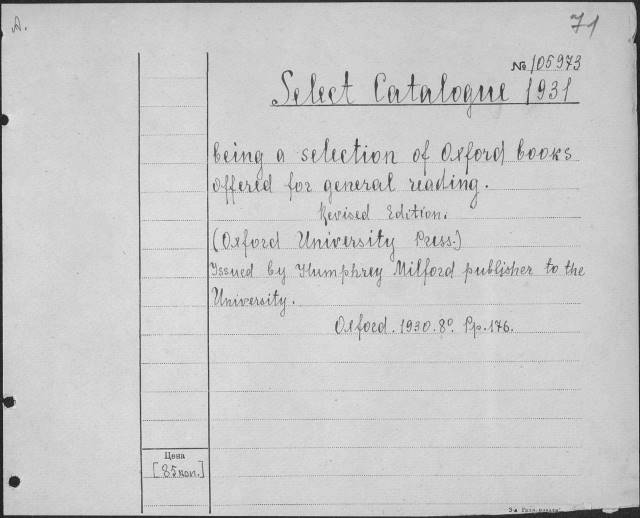 A.
71
№ 105973
Select Catalogue 1931
being a selection of Oxford books
offered for general reading.
Revised Edition.
(Oxford University Press.)
Issued by Humphrey Milford publisher to the
University.
Oxford. 1930. 8º. Pp. 176.
Цена
[85 коп.]